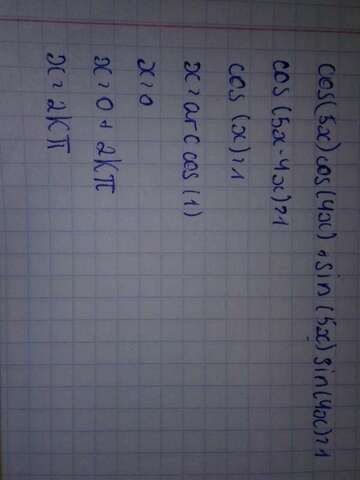 cos(5x)cos(4x)+sin(5x)sin(4x)=1
cos(5x-4x)=1
cos(x)=1
x=arccos(1)
x=0
x=0+2kπ
x=2kπ